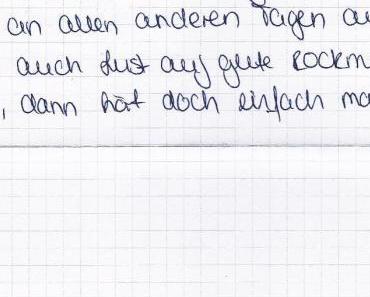 an allen anderen Tagen au
auch Lust auf gute Rockm
, dann hät doch einfach ma